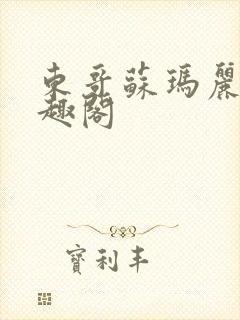 東哥蘇瑪麗
趣閣
寶利丰